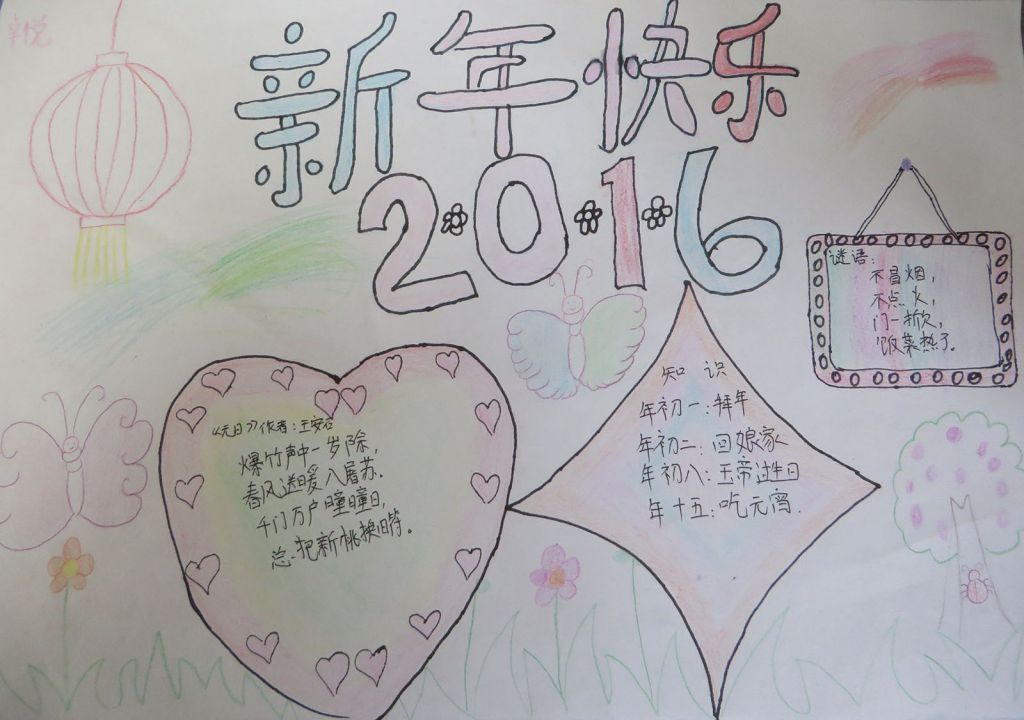 卓悦
新年快乐
2·0·1·6
谜语：
不冒烟，
不点火，
门一掀，
饭菜热了。
知识
年初一：拜年
年初二：回娘家
年初八：玉帝过生日
年十五：吃元宵.
《元日》作者：王安石
爆竹声中一岁除，
春风送暖入屠苏.
千门万户瞳瞳日，
总把新桃换旧符。